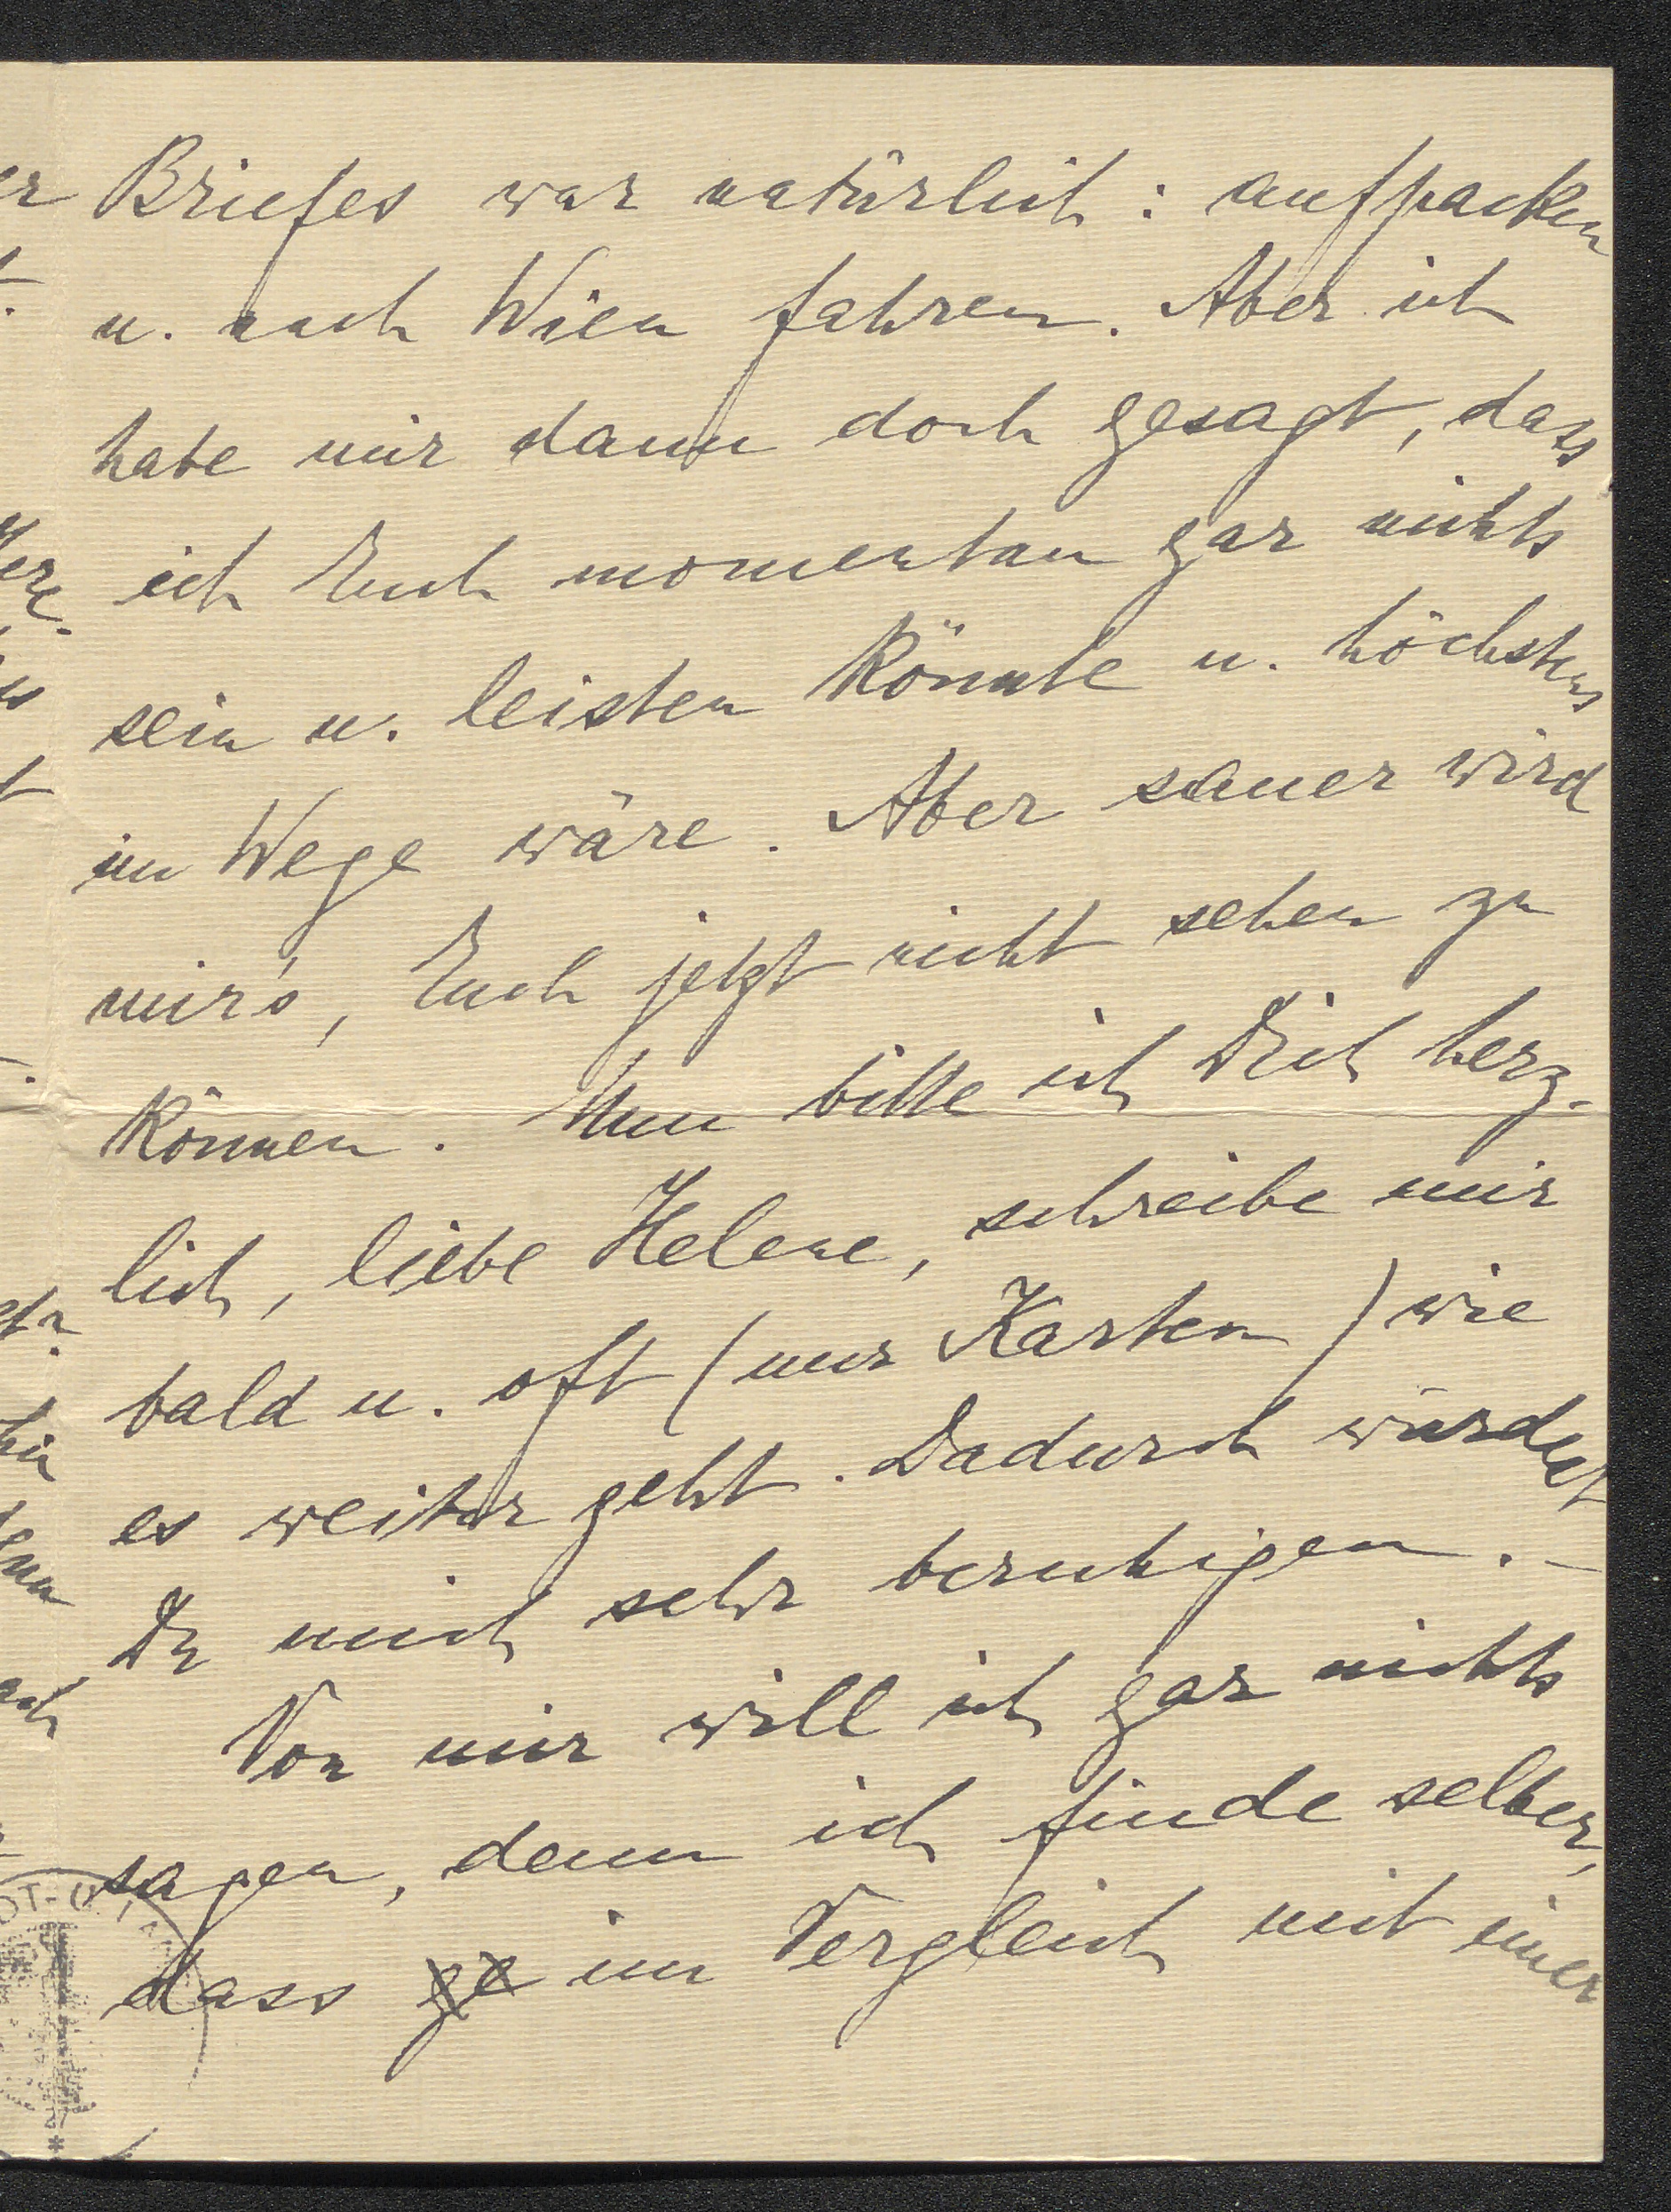 Briefes war natürlich: aufpacken
u. nach Wien fahren. Aber ich
habe mir dann doch gesagt, dass
ich Euch momentan gar nichts
sein u. leisten könnte u. höchstens
im Wege wäre. Aber sauer wird
mir's, Euch jetzt nicht sehen zu
können. Nun bitte ich Dich herz-
lich, liebe Helene, schreibe mir
bald u. oft (nur Karten) wie
es weiter geht. Dadurch würdest
Du mich sehr beruhigen. –
Von mir will ich gar nichts
sagen, denn ich finde selber,
dass ge im Vergleich mit einer